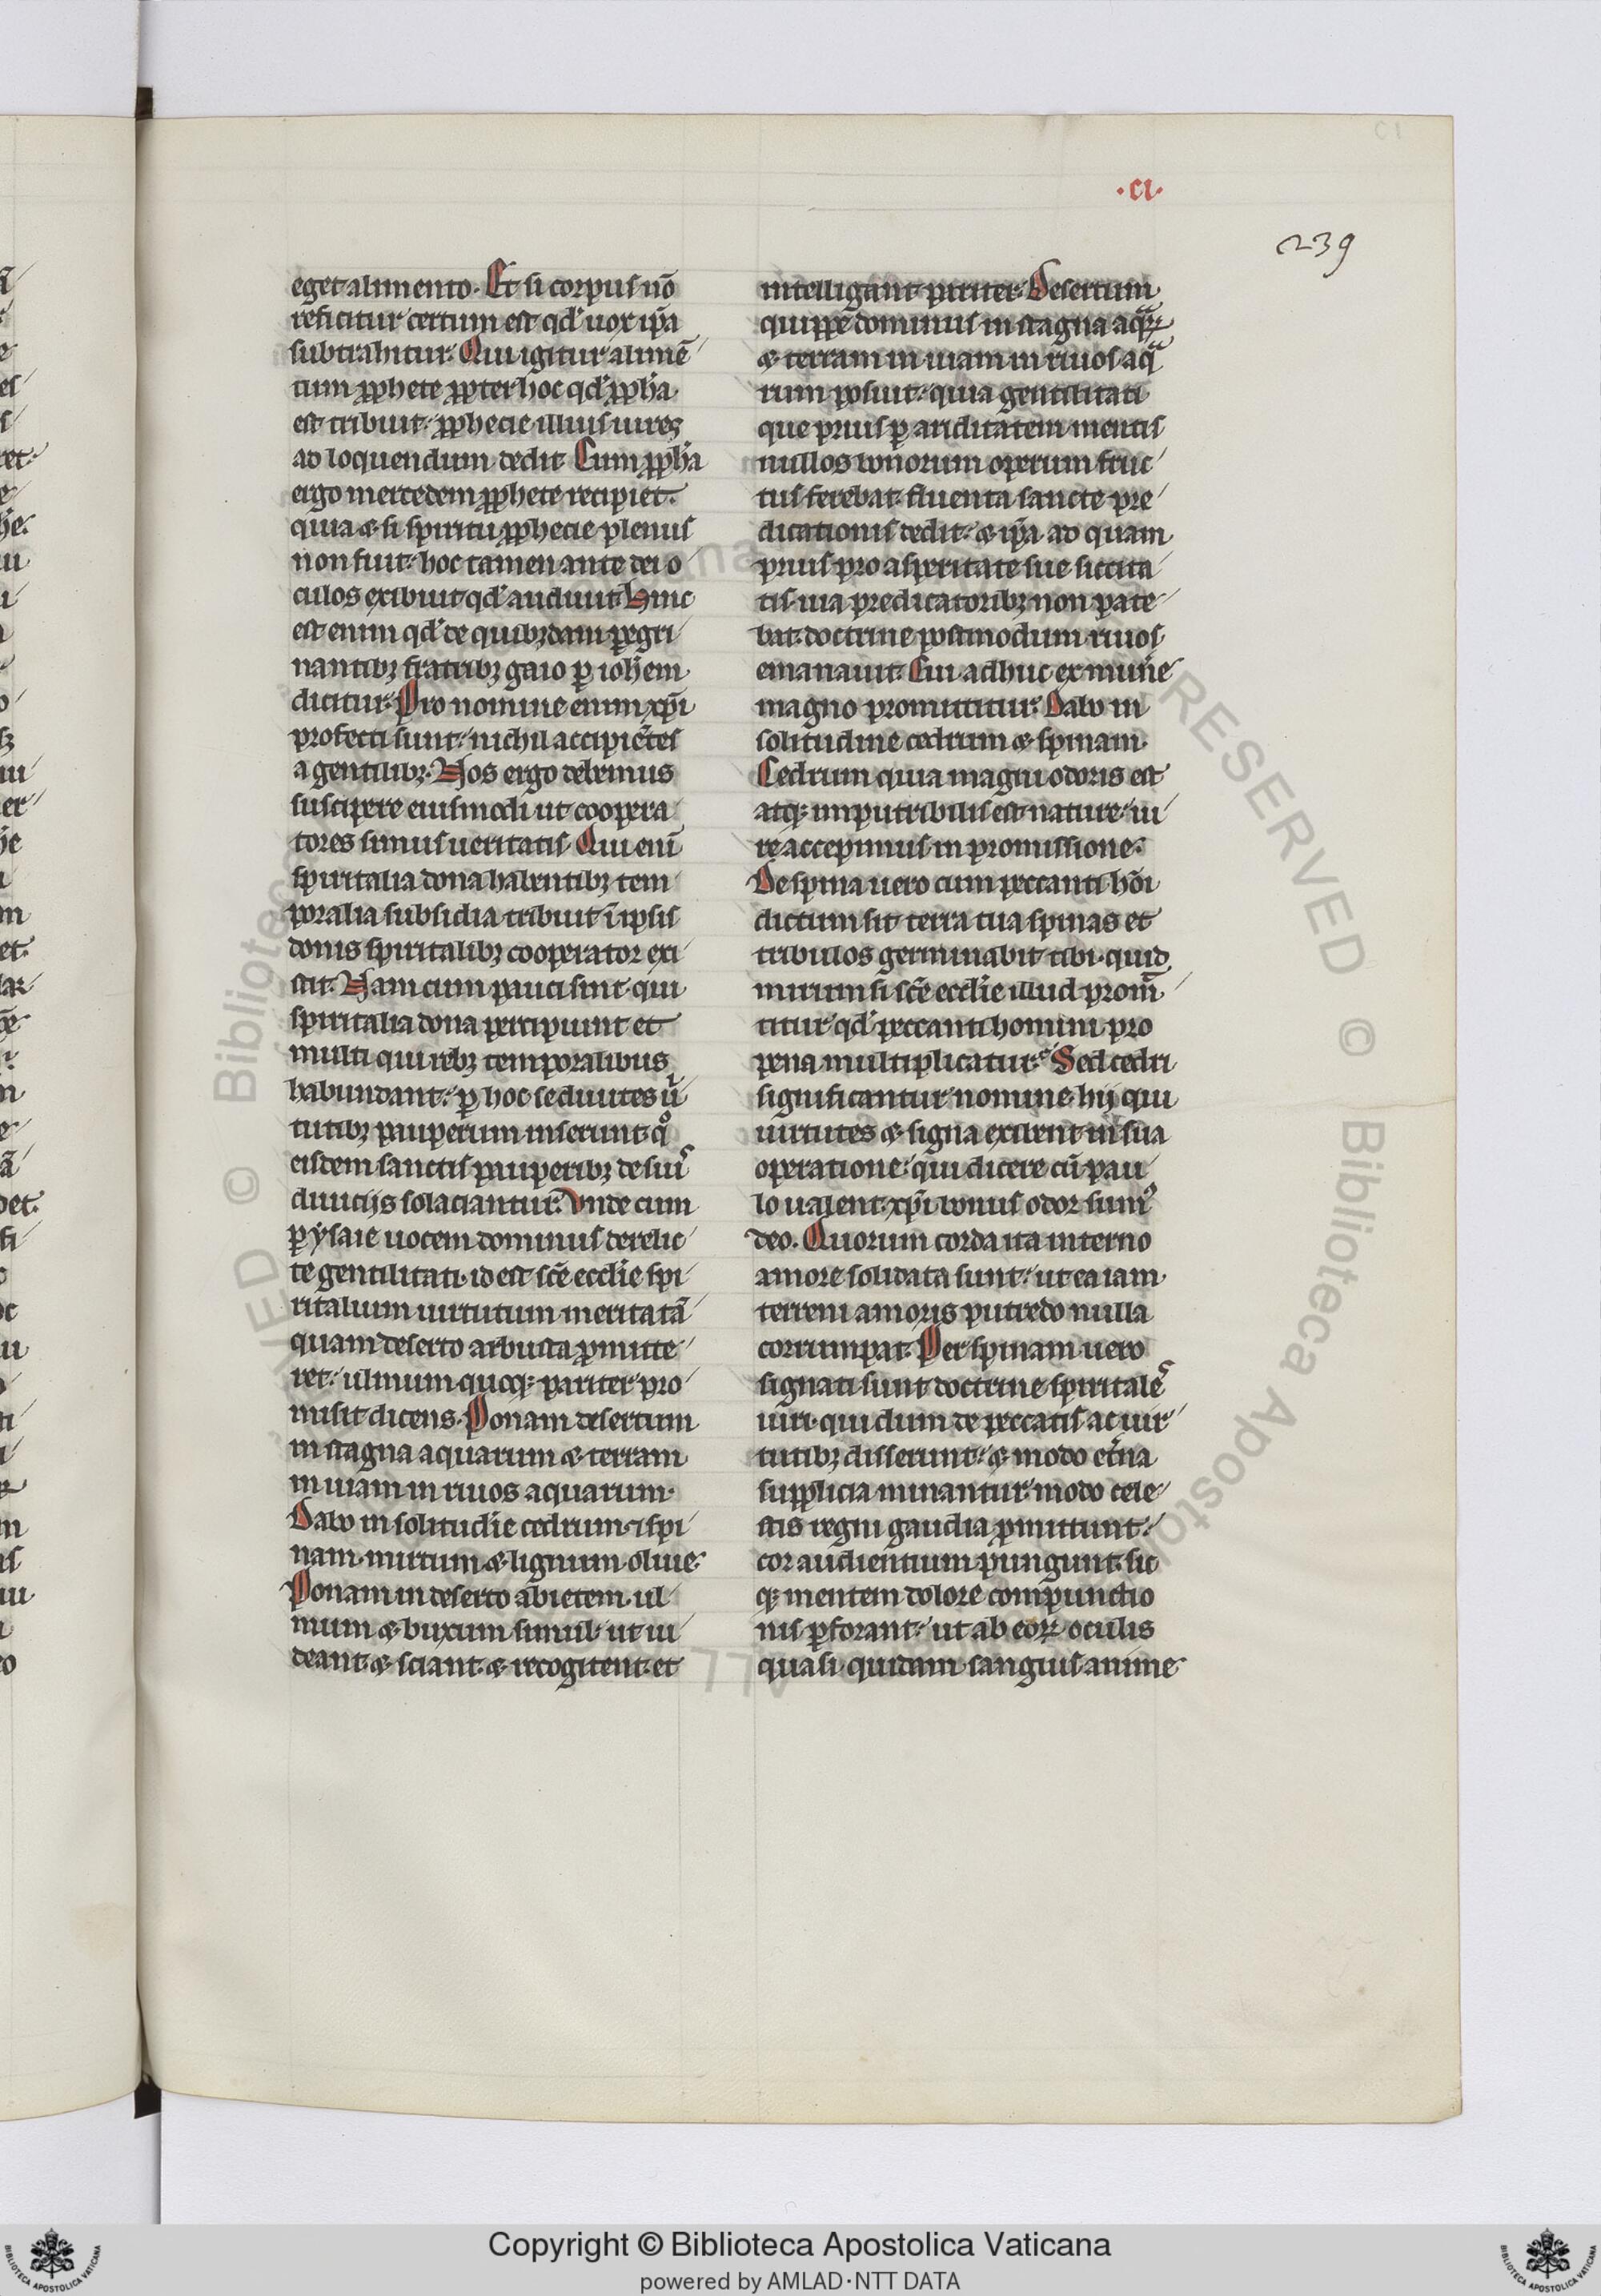 ·CI·
239
eget alimento. Et si corpus nō
reficitur certum est qd' uox ip̄a
subtrahitur. Qui igitur alimē
tum ꝓphete ꝓpter hoc qd' ꝓph̄a
est tribuit. ꝓphecie illius uires
ad loquendum dedit Cum ꝓph̄a
ergo mercedem ꝓphete recipiet.
quia & si spiritu ꝓphecie plenus
non fuit. hoc tamen ante dei o
culos exibuit qd' adiuuit. Hinc
est enim qd' de quibꝫdam ꝑegri
nantibꝫ fratribꝫ gaio ꝑ ioh̄em
dicitur. Pro nomine enim xp̄i
profecti sunt. nichil accipiētes
a gentilibꝫ. Nos ergo debemus
suscipere eiusmodi ut coopera
tores simus ueritatis. Qui enī
spiritalia dona habentibꝫ tem
poralia subsidia tribuit ī ipsis
donis spiritalibꝫ cooperator exi
stit. Nam cum pauci sint qui
spiritalia dona percipiunt et
multi qui rebꝫ temporalibus
habundant. ꝑ hoc se diuites uͥ
tutibꝫ pauperum inserunt qͦ
eisdem sanctis pauperibꝫ de suiˢ
diuicijs solaciantur. Vnde cum
ꝑ ysaie uocem dominus derelic
te gentilitati. id est sc̄e eccl̄ie spi
ritalium uirtutum merita tā
quam deserto arbusta ꝓmitte
ret. ulmum quoqꝫ pariter pro
misit dicens. Ponam desertum
in stagna aquarum & terram
in uiam in riuos aquarum.
Dabo in solitudīe cedrum. ⁊ spi
nam. mirtum & lignum oliue.
Ponam in deserto abietem. ul
mum & buxum simul. ut ui
deant. & sciant. & recogitent. et
intelligant pariter. Desertum
quippe dominus in stagna aqᷓꝝ
& terram in uiam in riuos aqᷓ
rum posuit. quia gentilitati
que prius ꝑ ariditatem mentis
nullos bonorum operum fruc
tus ferebat. fluenta sancte pre
dicationis dedit. & ip̄a ad quam
prius pro asperitate sue siccita
tis uia predicatoribꝫ non pate
bat. doctrine postmodum riuos
emanauit. Cui adhuc ex mun̄e
magno promittitur. Dabo in
solitudine cedrum & spinam.
Cedrum quia magni odoris est
atqꝫ imputribilis est nature. iu
re accepimus in promissione.
De spina uero cum peccanti hōi
dictum sit terra tua spinas et
tribulos germinabit tibi. quid
mirum si sc̄e eccl̄ie illud prom̄
titur qd' peccanti homini pro
pena multiplicatur. Sed cedri
significantur nomine. hij qui
uirtutes & signa exibent in sua
operatione. qui dicere cū pau
lo ualent. xp̄i bonus odor sumꝰ
deo. Quorum corda ita interno
amore solidata sunt. ut ea iam
terreni amoris putredo nulla
corrumpat. Per spinam uero
signati sunt doctrine spiritaleˢ
uiri. qui dum de peccatis ac uir
tutibꝫ disserunt. & modo et̄na
supplicia minantur modo cele
stis regni gaudia ꝓmittunt.
cor audientium pungunt. sic
qꝫ mentem dolore compunctio
nis ꝑforant. ut ab eoꝝ oculis
quasi quidam sanguis anime